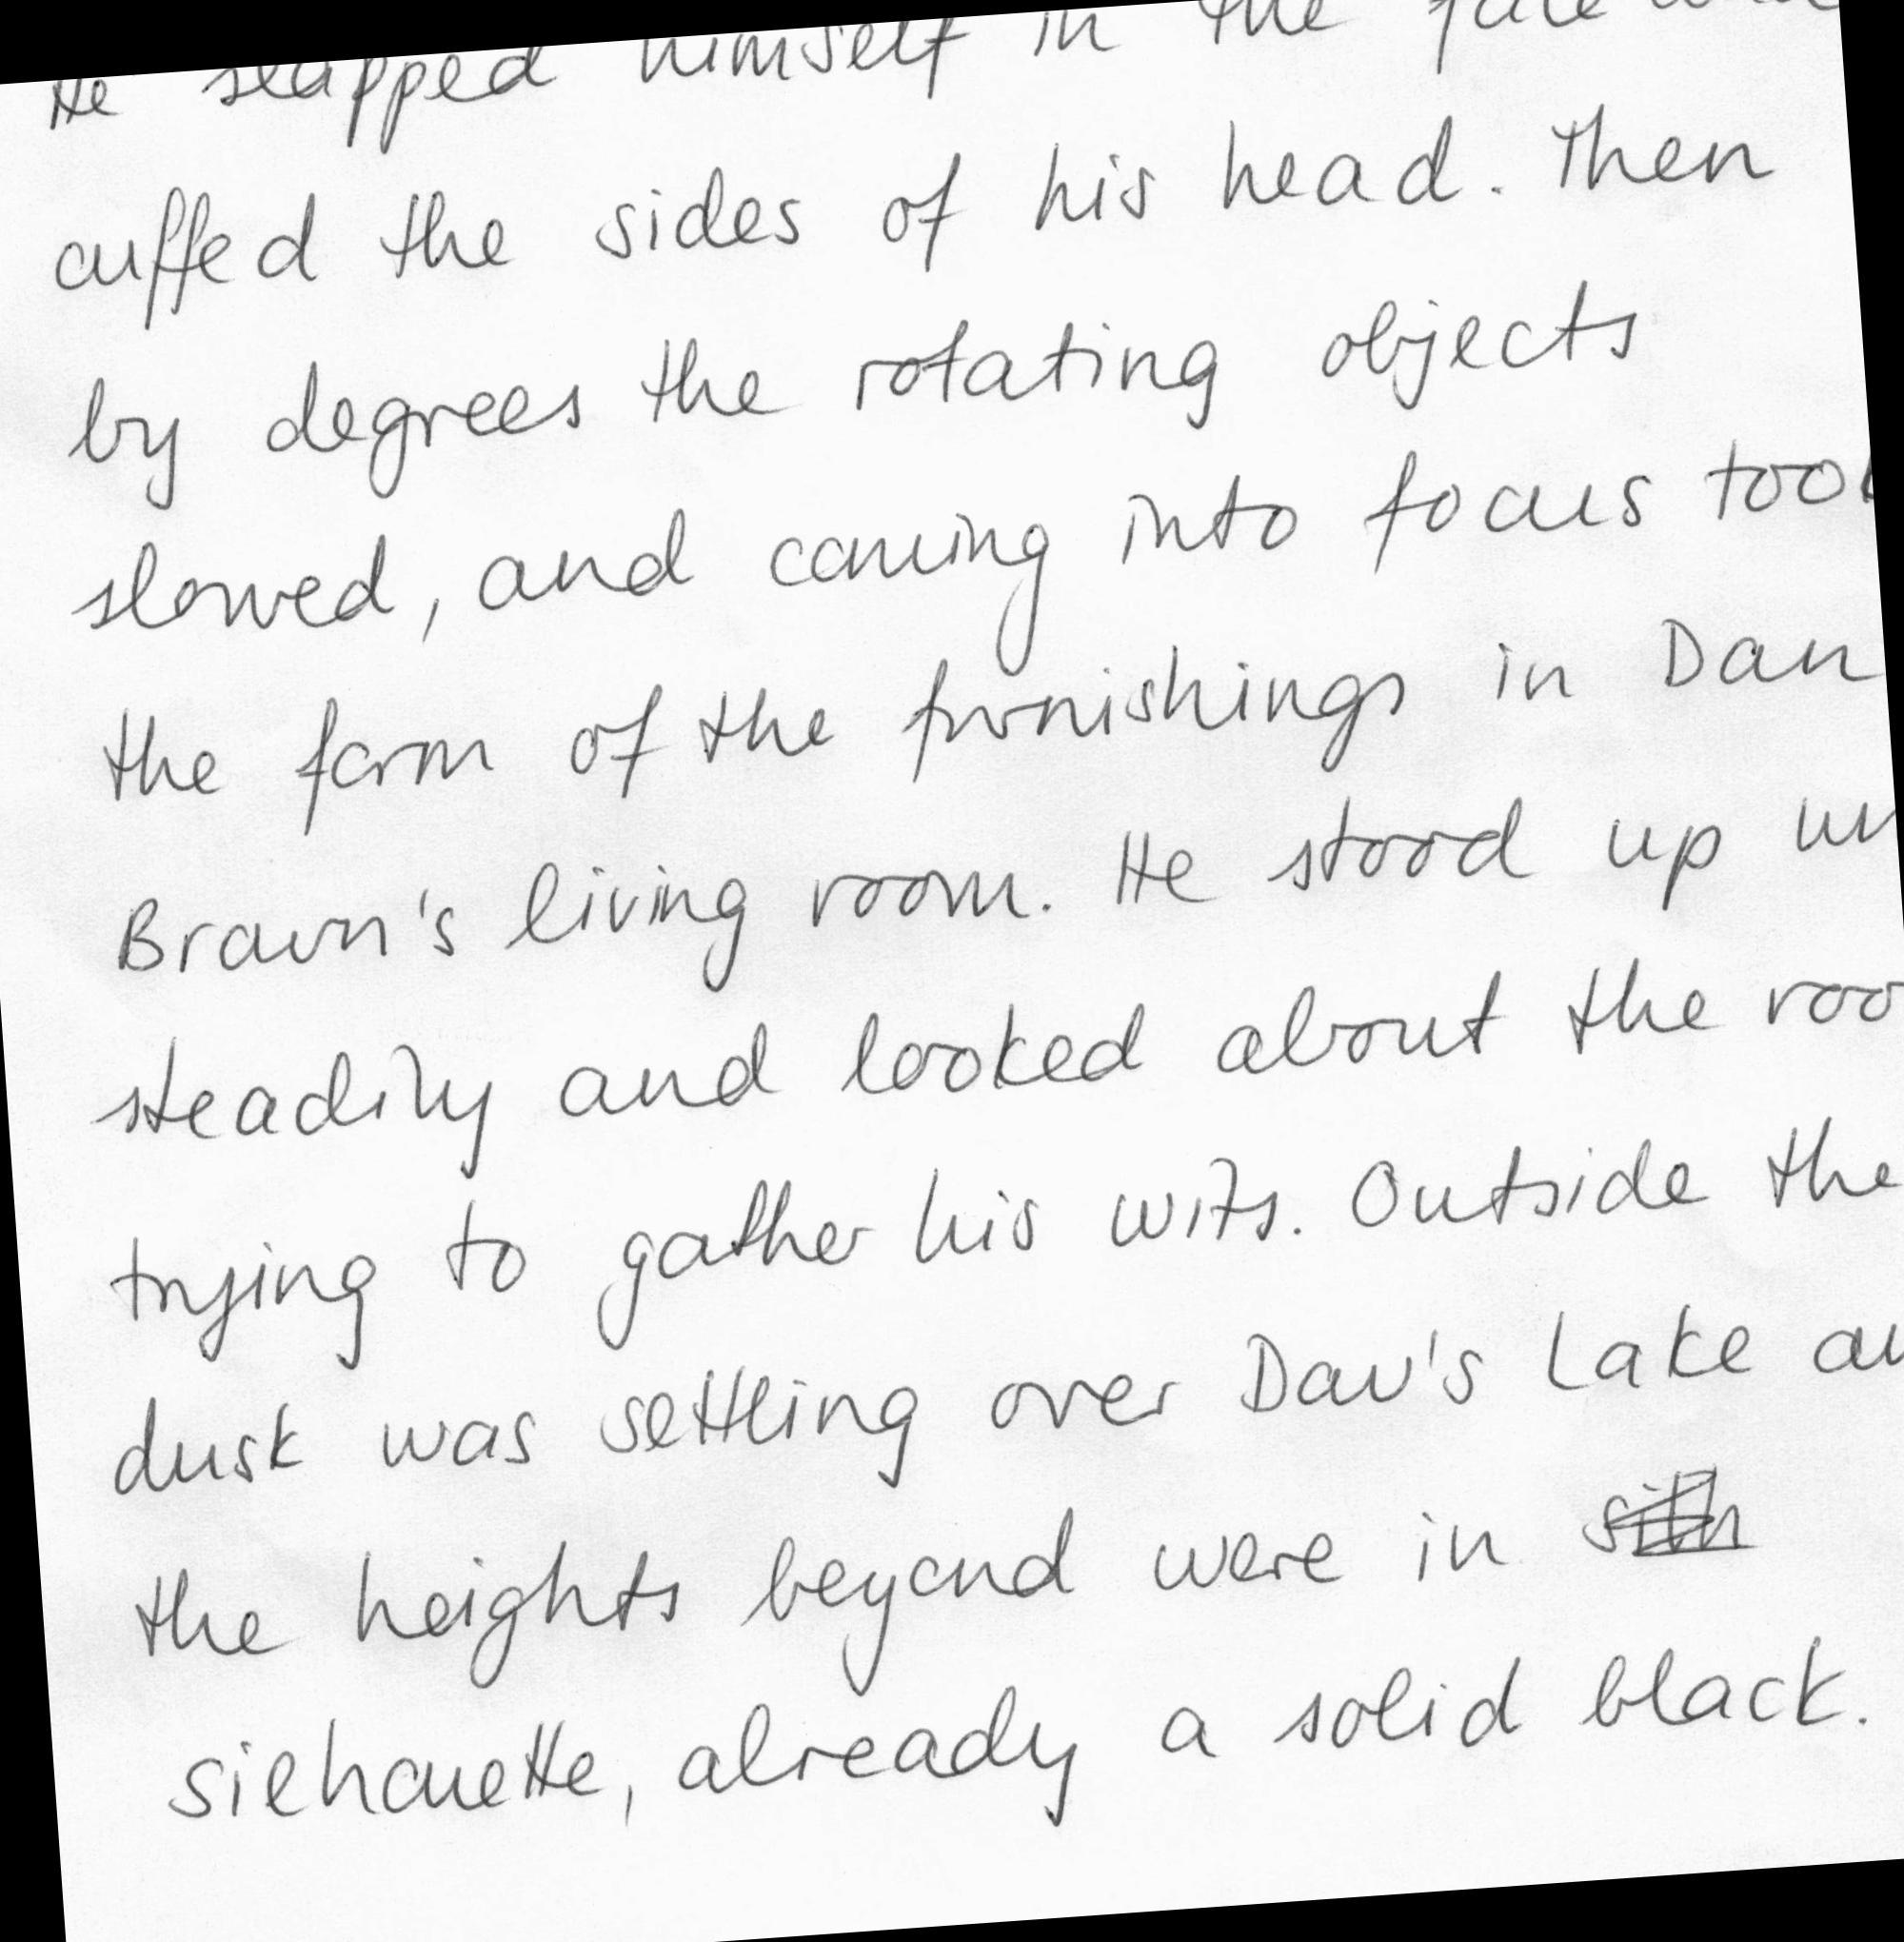 He slapped himself in the face and
cuffed the sides of his head. Then
by degrees the rotating objects
slowed, and coming into focus took
the form of the furnishings in Dan
Brown's living room. He stood up un
steadily and looked about the roo
trying to gather his wits. Outside the
dusk was settling over Dan's Lake an
the heights beyond were in
silhouette, already a solid black.